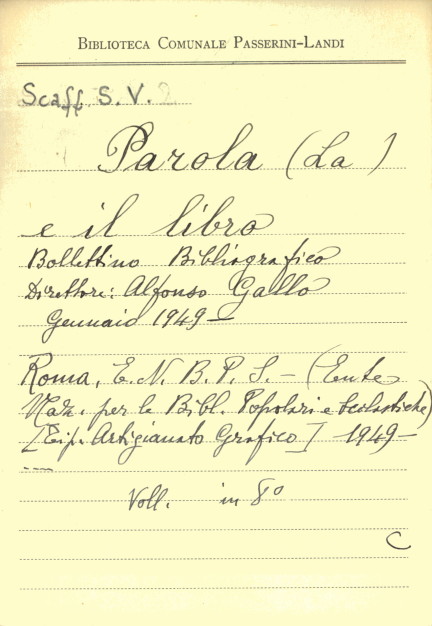 BIBLIOTECA COMUNALE PASSERINI-LANDI
Scaff. S. V. 2
Parola (La)
e il libro
Bollettino Bibliografico
Direttore: Alfonso Gallo
Gennaio 1949 –
Roma, E. N. B. P. S. – (Ente
Naz. per le Bibl. Popolari e Scolastiche)
[Tip. Artigianato Grafico] 1949 –
----
Voll. in 8°
C